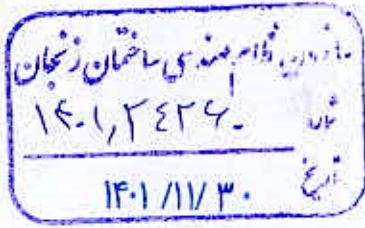 سازمان نظام مهندسی ساختمان زنجان
شماره ۱۴۰۱,۲۴۲۶۰
تاریخ ۱۴۰۱/۱۱/۳۰